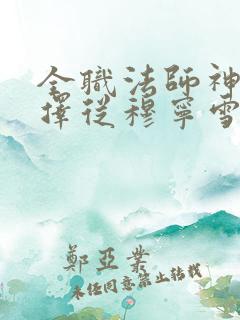 全職法師神
擇從穆寧雪
鄭亞業
未经同意禁止转载